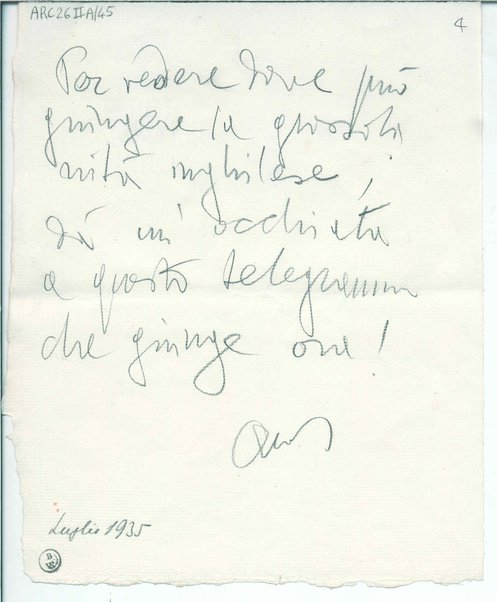 ARC26IIA/45
4
Per vedere dove può
giungere la grossola
nità inghilese,
dà un' occhiata
a questo telegramma
che giunge ora!
Luglio 1935